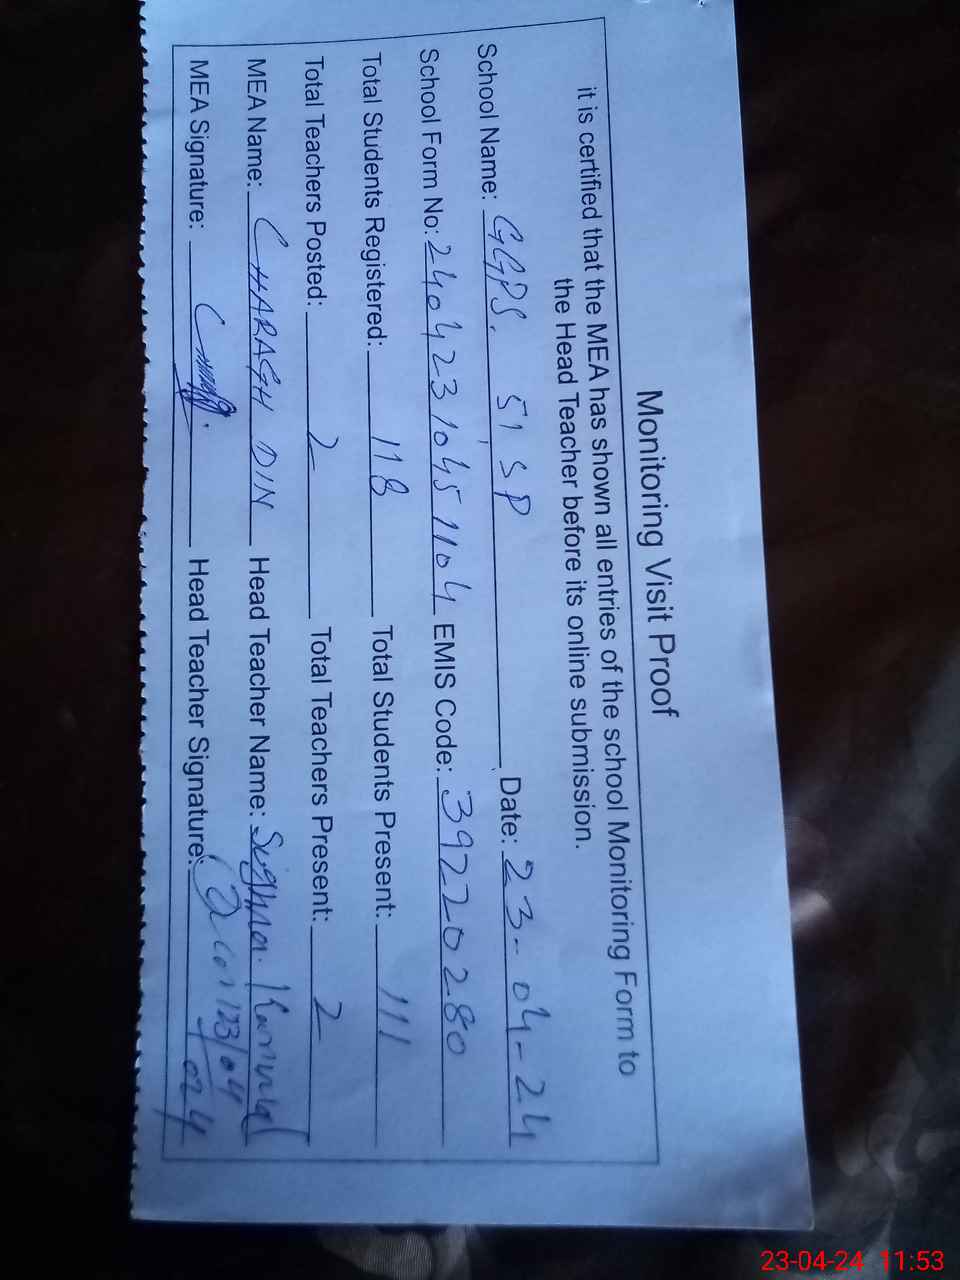 Monitoring Visit Proof
it is certified that the MEA has shown all entries of the school Monitoring Form to
the Head Teacher before its online submission.
School Name: GGPS. 51 SP Date: 23-04-24
School Form No: 24042310451104 EMIS Code: 39220280
Total Students Registered: 118 Total Students Present: 111
Total Teachers Posted: 2 Total Teachers Present: 2
MEA Name: CHARAGH DIN Head Teacher Name: Sughra Kanwal
MEA Signature: Head Teacher Signature: 23/04
24
23-04-24 11:53